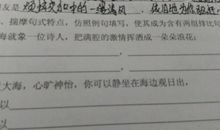 友是 烦扰交加中的一缕清风
揣摩句式特点，仿照例句填写，使其成为含有两组排比句
海就象一位诗人，把满腔的激情挥洒成一朵朵浪花；
大海，心旷神怡，你可以静坐在海边观日出，
以
以